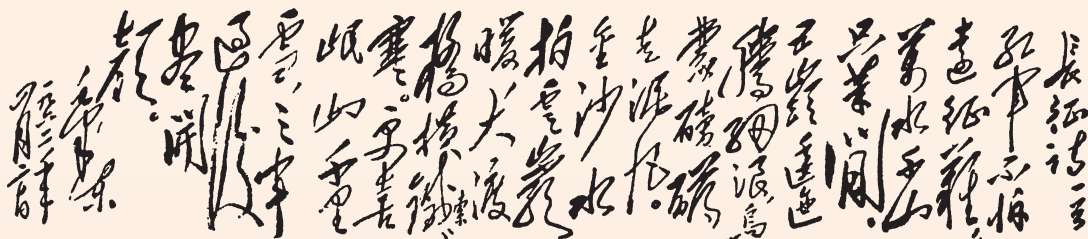 長征詩一首
紅軍不怕
遠征難，
萬水千山
只等閒。
五嶺逶迤
騰細浪，烏
蒙磅礴
走泥丸。
金沙水
拍雲崖
暖，大渡
橋橫鐵索
寒。更喜
岷山千里
雪，三軍
過後
盡開
顏。
毛澤東